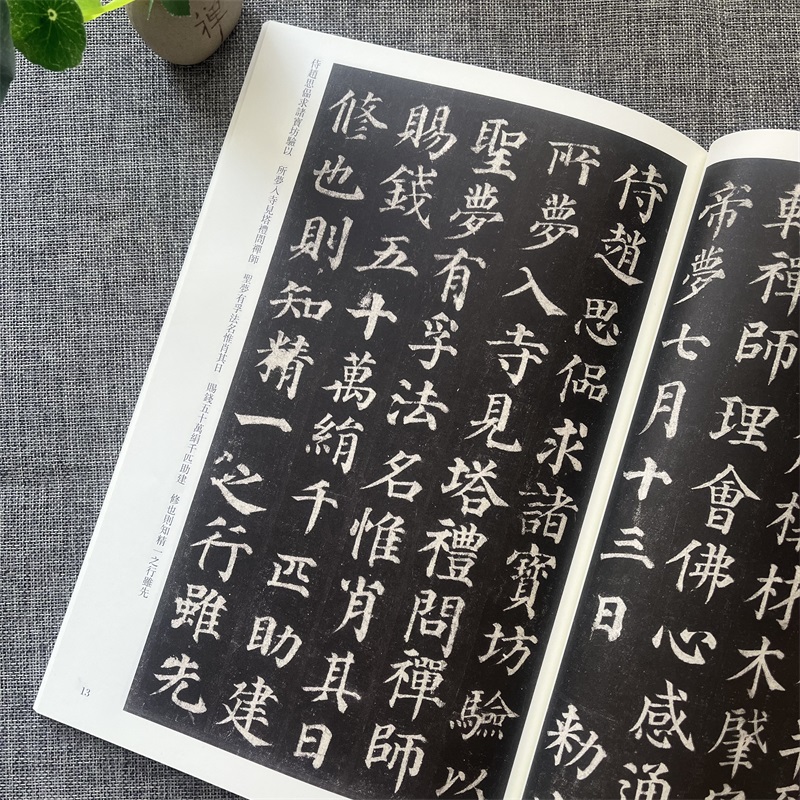 構材木肇
輪禪師理會佛心感通
帝夢七月十三日
敕
侍趙思偘求諸寶坊驗以
所夢入寺見塔禮問禪師
聖夢有孚法名惟肖其日
賜錢五十萬絹千匹助建
修也則知精一之行雖先
侍趙思偘求諸寶坊驗以　所夢入寺見塔禮問禪師　聖夢有孚法名惟肖其日　賜錢五十萬絹千匹助建　修也則知精一之行雖先
13
禪